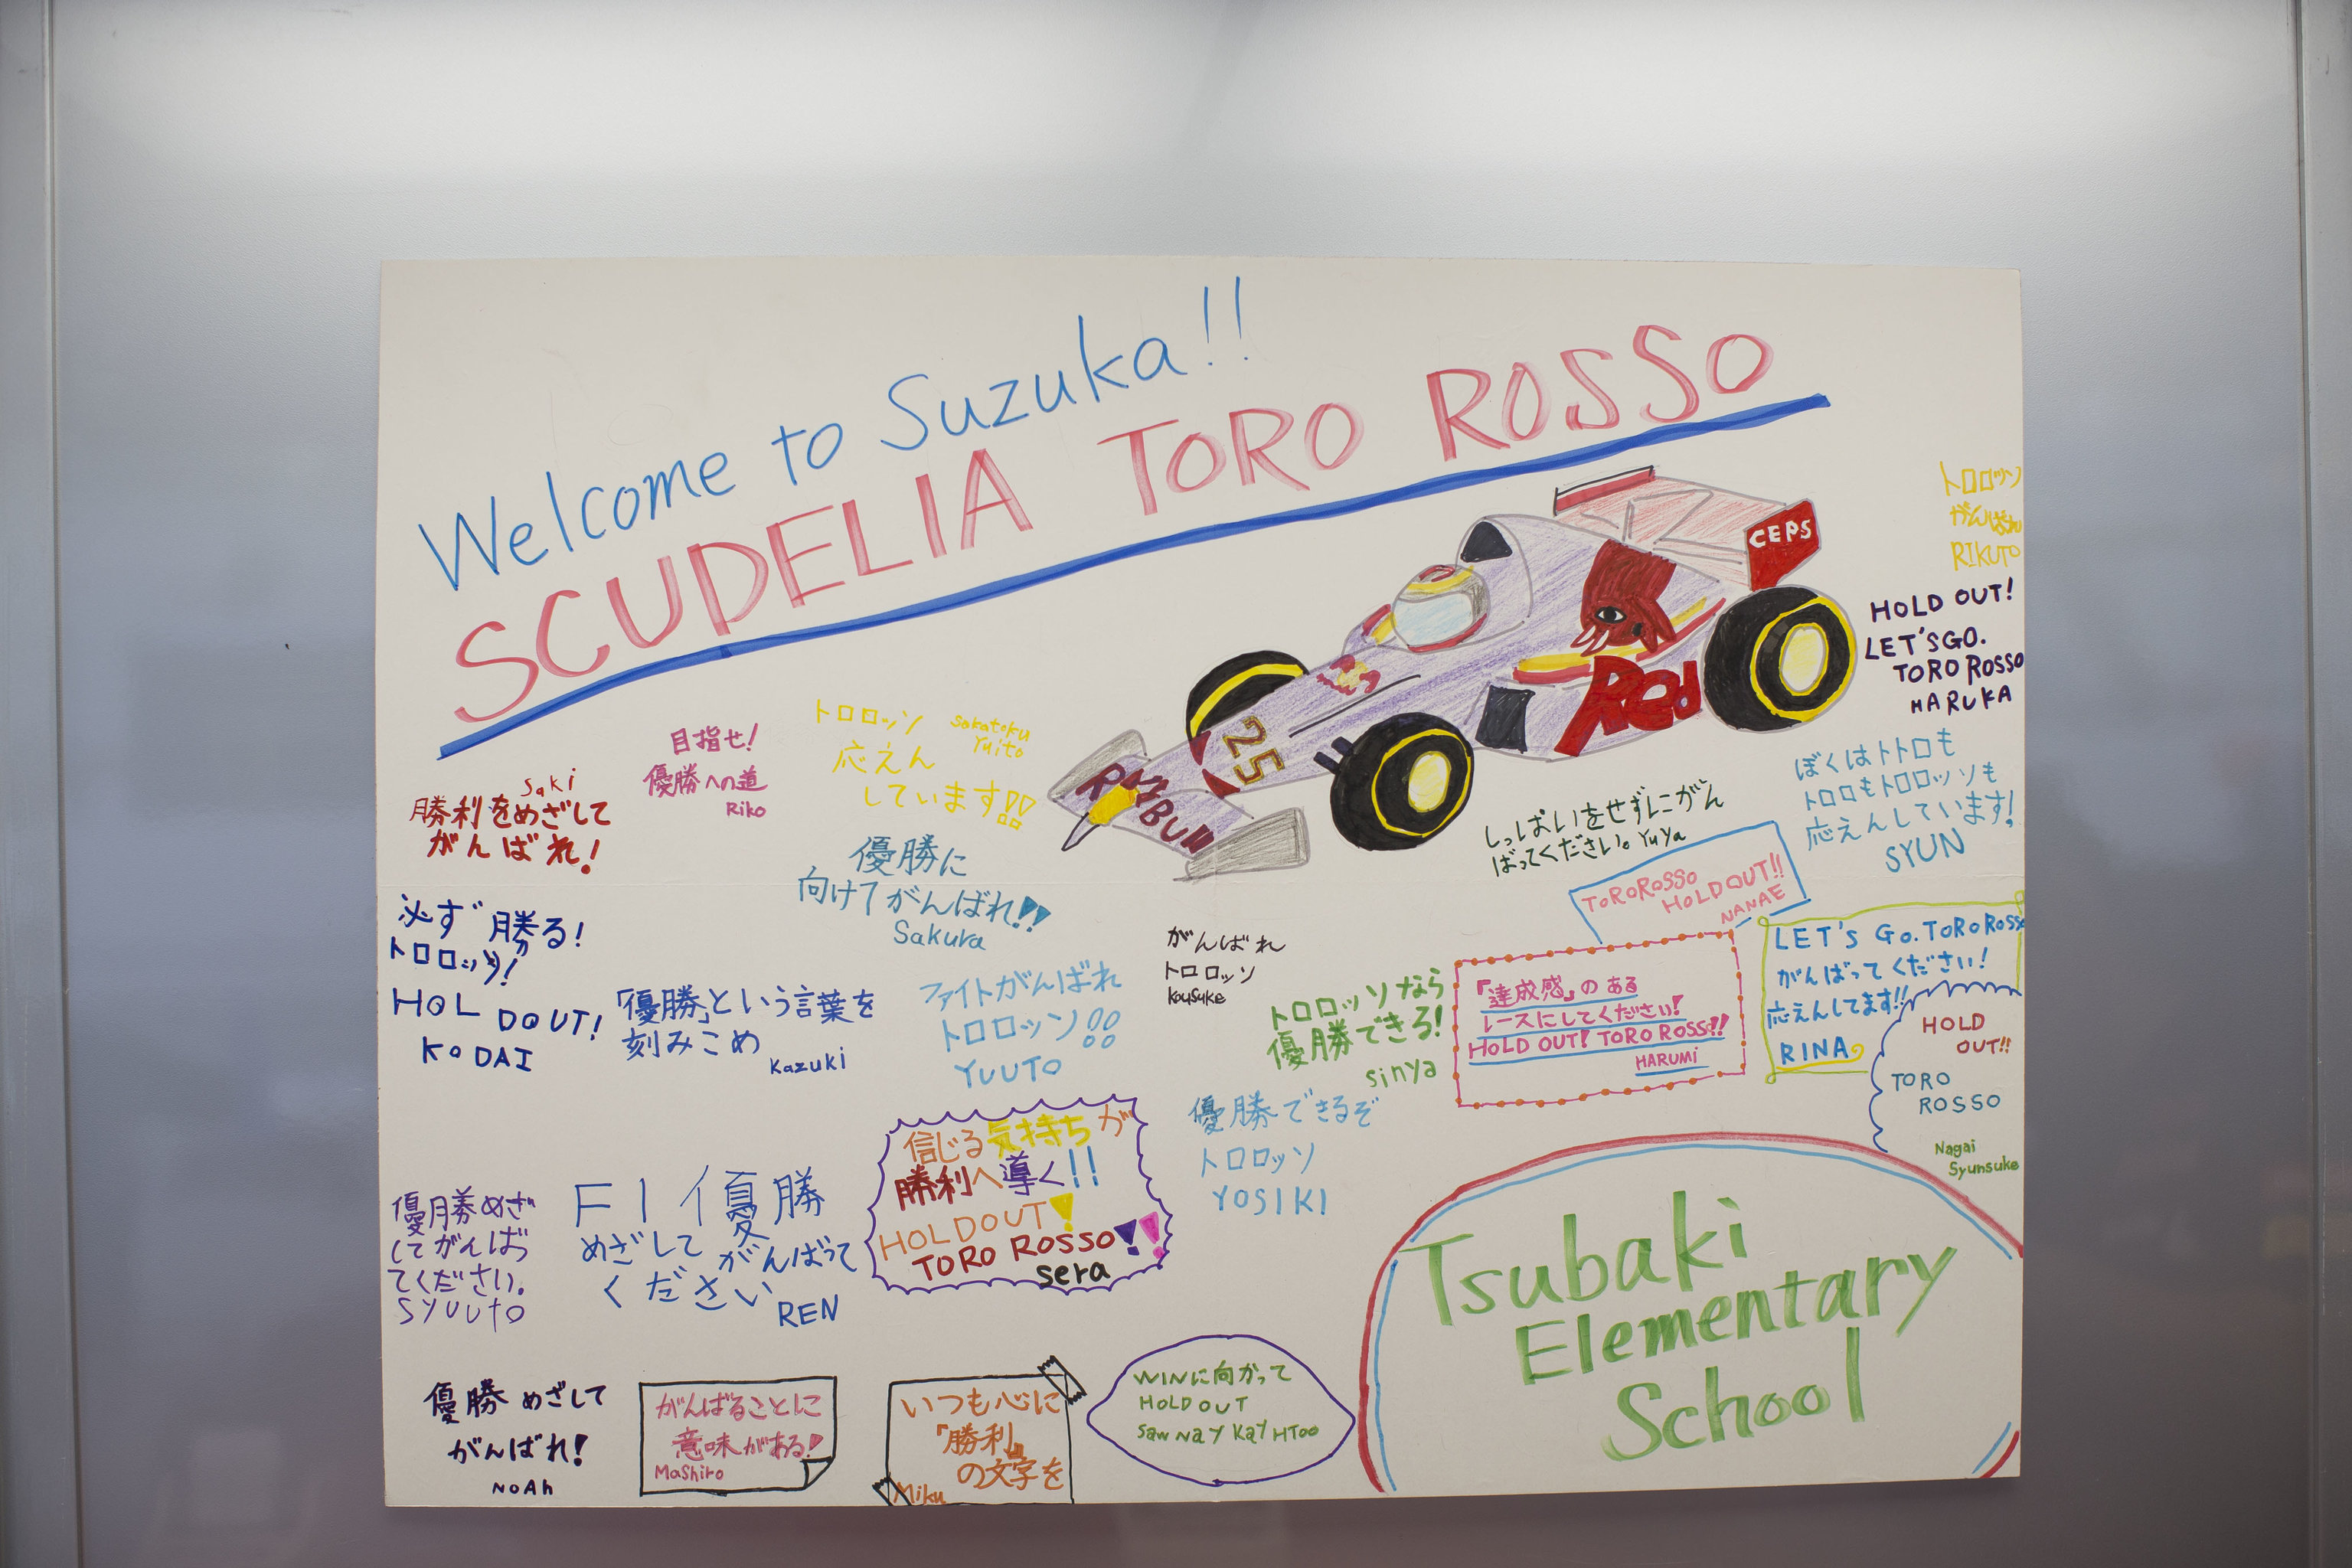 Welcome to Suzuka!!
SCUDELIA TORO ROSSO
CEPS
Red
25
トロロッソ
がんばれ
RIKUTO
HOLD OUT!
LET'S GO.
TORO ROSSO
HARUKA
Saki
勝利をめざして
がんばれ!
目指せ!
優勝への道
Riko
トロロッソ
応えん
しています!!
Sakatoku
Yuito
優勝に
向けてがんばれ!!
Sakura
しっぱいをせずにがん
ばってください。Yuya
ぼくはトトロも
トロロもトロロッソも
応えんしています!
SYUN
TOROROSSO
HOLD OUT!!
NANAE
必ず勝る!
トロロッソ!
HOL DOUT!
KODAI
「優勝」という言葉を
刻みこめ
Kazuki
ファイトがんばれ
トロロッソ!!
YUUTO
がんばれ
トロロッソ
Kousuke
トロロッソなら
優勝できる!
sinya
『達成感』のある
レースにしてください!
HOLD OUT! TORO ROSSO!!
HARUMI
LET'S GO. TORO ROSSO
がんばってください!
応えんしてます!!
RINA
HOLD
OUT!!
TORO
ROSSO
Nagai
Syunsuke
優勝めざ
してがんばっ
てください。
SYUUTO
F1優勝
めざして がんばって
ください
REN
信じる気持ちが
勝利へ導く!!
HOLDOUT!
TORO ROSSO!!
sera
優勝できるぞ
トロロッソ
YOSIKI
優勝 めざして
がんばれ!
NOAh
がんばることに
意味がある!
Mashiro
いつも心に
『勝利』
の文字を
Miku
WINに向かって
HOLD OUT
Saw Nay Kay HToo
Tsubaki
Elementary
School